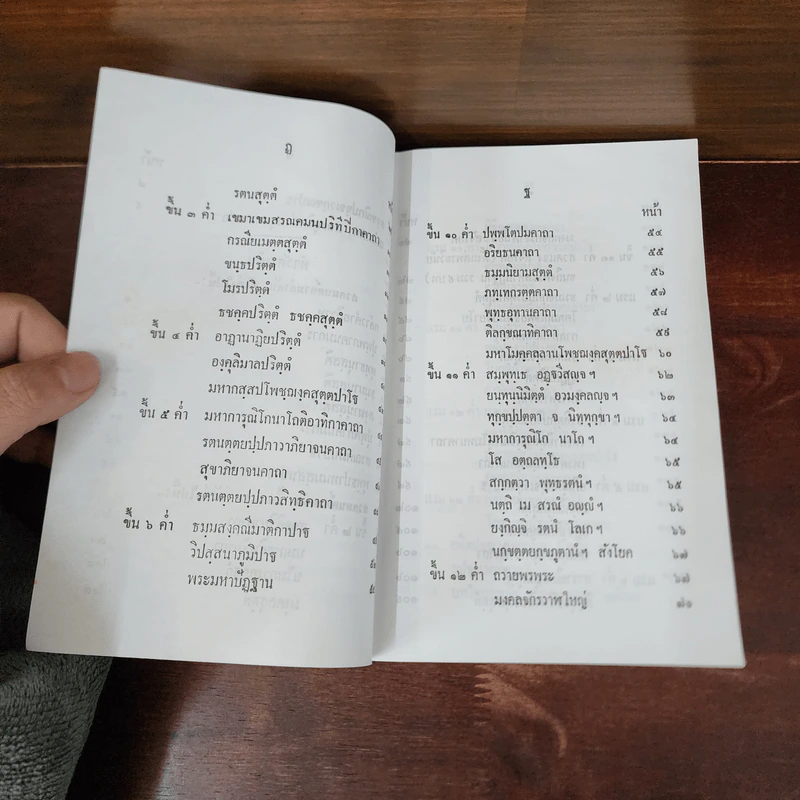 ฎ
รตนสุตฺตํ
ขึ้น ๓ ค่ำ เขมาเขมสรณคมนปริทีปิกาคาถา
กรณียเมตฺตสุตฺตํ
ขนฺธปริตฺตํ
โมรปริตฺตํ
ธชคฺคปริตฺตํ ธชคฺคสุตฺตํ
ขึ้น ๔ ค่ำ อาฏานาฏิยปริตฺตํ
องฺคุลิมาลปริตฺตํ
มหากสฺสปโพชฺฌงฺคสุตฺตปาโฐ
ขึ้น ๕ ค่ำ มหาการุณิโกนาโถติอาทิกาคาถา
รตนตฺตยปฺปภาวาภิยาจนคาถา
สุขาภิยาจนคาถา
รตนตฺตยปฺปภาวสิทฺธิคาถา
ขึ้น ๖ ค่ำ ธมฺมสงฺคณีมาติกาปาฐ
วิปสฺสนาภูมิปาฐ
พระมหาปัฏฐาน
ฐ
หน้า
ขึ้น ๑๐ ค่ำ ปพฺพโตปมคาถา ๕๔
อริยธนคาถา ๕๕
ธมฺมนิยามสุตฺตํ ๕๖
ภทฺเทกรตฺตคาถา ๕๗
พุทฺธอุทานคาถา ๕๘
ติลกฺขณาทิคาถา ๕๙
มหาโมคฺคลฺลานโพชฺฌงฺคสุตฺตปาโฐ ๖๐
ขึ้น ๑๑ ค่ำ สมฺพุทฺเธ อฏฺฐวีสญฺจ ฯ ๖๒
ยนฺทุนฺนิมิตฺตํ อวมงฺคลญฺจ ฯ ๖๓
ทุกฺขปฺปตฺตา จ นิทฺทุกฺขา ฯ ๖๔
มหาการุณิโก นาโถ ฯ ๖๔
โส อตฺถลทฺโธ ๖๕
สกฺกตฺวา พุทฺธรตนํ ฯ ๖๕
นตฺถิ เม สรณํ อญฺญํ ฯ ๖๖
ยงฺกิญฺจิ รตนํ โลเก ฯ ๖๖
นกขตฺตยกฺขภูตานํ ฯ สังโยค ๖๗
ขึ้น ๑๒ ค่ำ ถวายพรพระ ๖๗
มงคลจักรวาฬใหญ่ ๗๑